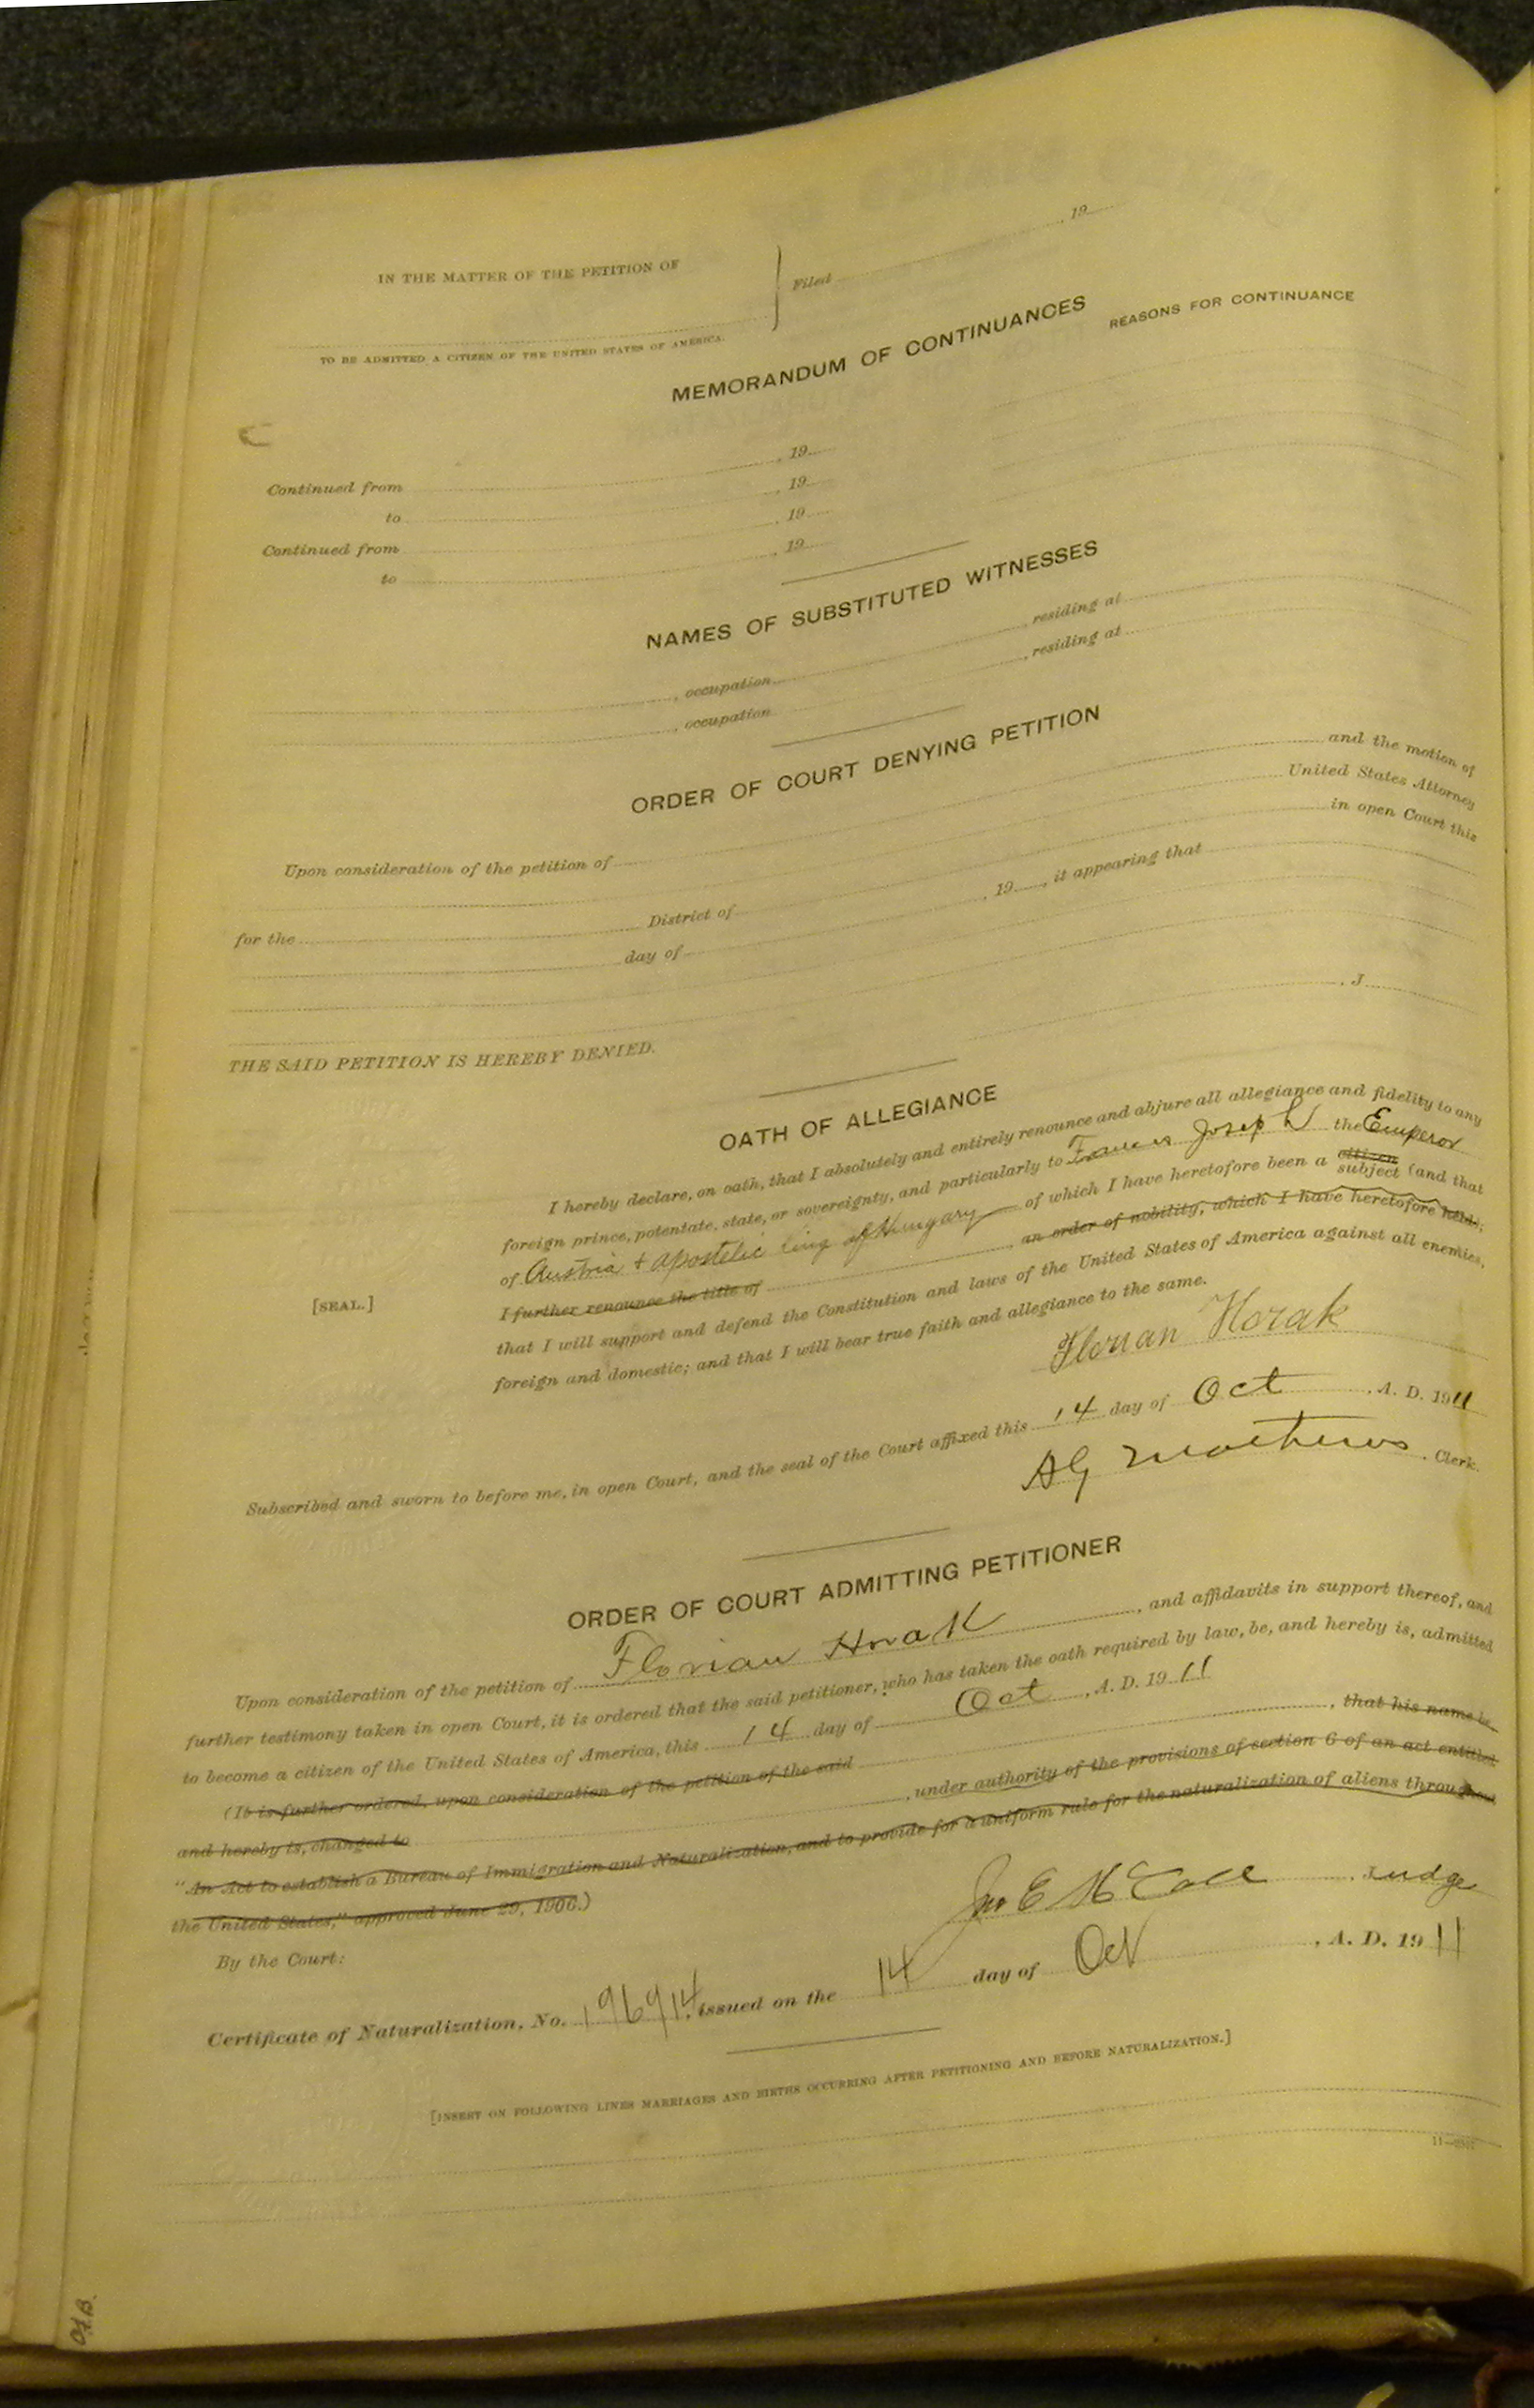 IN THE MATTER OF THE PETITION OF
Filed , 19
TO BE ADMITTED A CITIZEN OF THE UNITED STATES OF AMERICA.
MEMORANDUM OF CONTINUANCES
REASONS FOR CONTINUANCE
Continued from , 19
to , 19
Continued from , 19
to , 19
NAMES OF SUBSTITUTED WITNESSES
, occupation , residing at
, occupation , residing at
ORDER OF COURT DENYING PETITION
Upon consideration of the petition of and the motion of
United States Attorney
for the District of in open Court this
day of , 19 , it appearing that
THE SAID PETITION IS HEREBY DENIED.
, J
OATH OF ALLEGIANCE
I hereby declare, on oath, that I absolutely and entirely renounce and abjure all allegiance and fidelity to any
foreign prince, potentate, state, or sovereignty, and particularly to Francis Joseph the Emperor
of Austria + apostolic king of Hungary of which I have heretofore been a citizen subject (and that
I further renounce the title of , an order of nobility, which I have heretofore held);
that I will support and defend the Constitution and laws of the United States of America against all enemies,
foreign and domestic; and that I will bear true faith and allegiance to the same.
[SEAL.]
Florian Horak
Subscribed and sworn to before me, in open Court, and the seal of the Court affixed this 14 day of Oct , A. D. 1911
AG Mathews , Clerk.
ORDER OF COURT ADMITTING PETITIONER
Upon consideration of the petition of Florian Horak , and affidavits in support thereof, and
further testimony taken in open Court, it is ordered that the said petitioner, who has taken the oath required by law, be, and hereby is, admitted
to become a citizen of the United States of America, this 14 day of Oct , A. D. 1911
(It is further ordered, upon consideration of the petition of the said , that his name be,
and hereby is, changed to , under authority of the provisions of section 6 of an act entitled
"An Act to establish a Bureau of Immigration and Naturalization, and to provide for a uniform rule for the naturalization of aliens throughout
the United States," approved June 29, 1906.)
By the Court:
Jno E McCall Judge
Certificate of Naturalization, No. 196914, issued on the 14 day of Oct , A. D. 1911
[INSERT ON FOLLOWING LINES MARRIAGES AND BIRTHS OCCURRING AFTER PETITIONING AND BEFORE NATURALIZATION.]